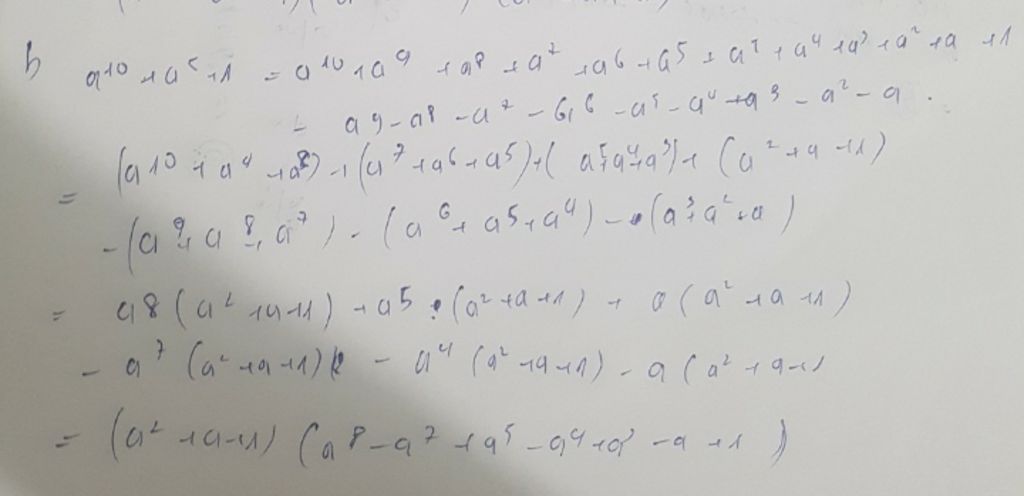 b a^10 + a^5 + 1 = a^10 + a^9 + a^8 + a^7 + a^6 + a^5 + a^5 + a^4 + a^3 + a^2 + a + 1
- a9 - a^8 - a^7 - a^6 - a^5 - a^4 - a^3 - a^2 - a .
= (a^10 + a^4 + a^8) + (a^7 + a^6 + a^5) + (a^5 + a^4 + a^3) + (a^2 + a + 1)
- (a^9 + a^8 + a^7) - (a^6 + a^5 + a^4) - (a^3 + a^2 + a)
= a8 (a^2 + a + 1) + a5 . (a^2 + a + 1) + (a^2 + a + 1)
- a^7 (a^2 + a + 1) - a^4 (a^2 + a + 1) - a (a^2 + a + 1
= (a^2 + a + 1) (a^8 - a^7 + a^5 - a^4 + a^3 - a + 1)